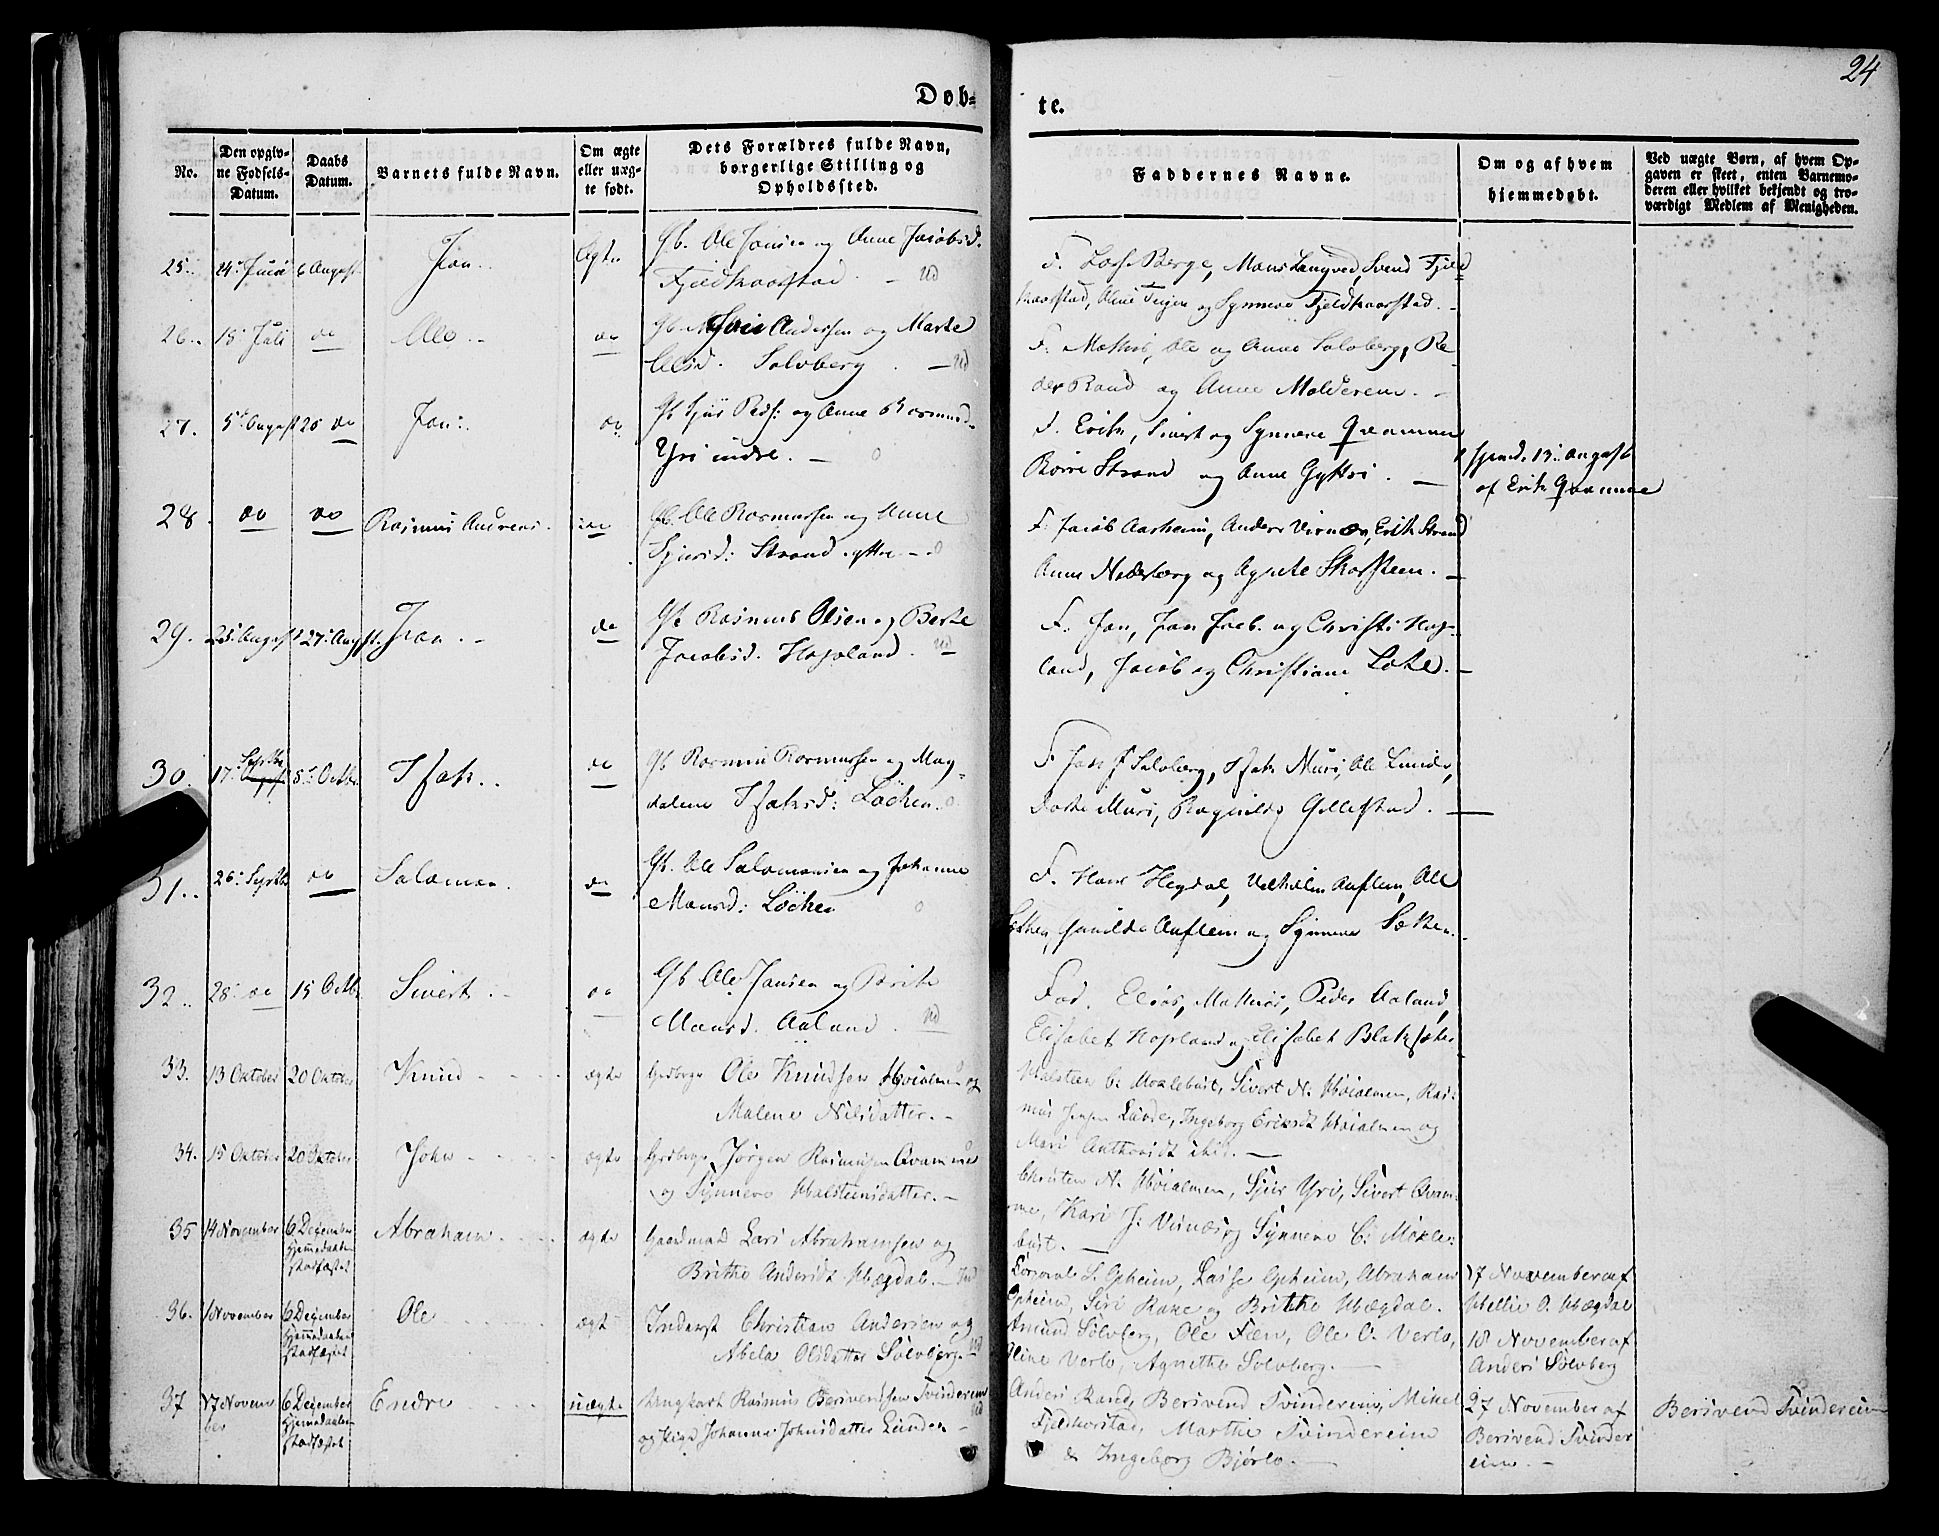 24
Døb=
te.
No.
Den opgiv-
ne Fødsels-
Datum.
Daabs
Datum.
Barnets fulde Navn.
Om ægte
eller uæg-
te født.
Dets Forældres fulde Navn,
borgerlige Stilling og
Opholdssted.
Faddernes Navne.
Om og af hvem
hjemmedøbt.
Ved uægte Børn, af hvem Op-
gaven er skeet, enten Barnemo-
deren eller hvilket bekjendt og tro-
værdigt Medlem af Menigheden.
25. 6 August Jon. Ægte Gb. Ole Jansen og Anne Jacobsd.
F. Berge, Mons Langved, Svend Fjeld
og Synneve
26. 15 Juli do Ole do Gb. Andersen og Marte
Olsd. Solvberg
F. Mathis, Ole og Anne Solvberg, Pe
der Rand og Anne Molderem.
27. 5 August 20 do Jon. do Gb Sjur og Anne Rasmusd.
Yri indre.
F. Erik, Sivert og Synneve Qvamme
Børre Strand og Anne Gyttri.
hjemd. 13 August
af Erik Qvamme
28. do do Rasmus Andreas. do Gb. Ole Rasmussen og Anne
Sjursd: Strand yttre
F. Jacob Aarheim, Anders Virnæs, Erik Strand
Anne Nedreberg og Agnete Skarsteen.
29. 27 August do Gb Rasmus Olsen og Berte
Jacobsd. Hopland.
F. Jon, Jon Jacb. og Christi Hop-
land, Jacob og Christiane Loke.
30. 17 Septbr August 8 Octbr Isak. do Gb Rasmus Rasmussen og Mag-
dalene Isaksd: Løcken.
F. Solvberg, Isak Muri, Ole Lunde,
Muri, Ragnilde Gillestad.
31. 26 Septbr do Salamon. do Gb. Ole Salamonsen og Johanne
Monsd: Løcken
F. Hans Hegdal, Velhelm Auflem, Ole
Gunilde Auflem og Synneve
32. 28 do 15 Octbr Sivert. do Gb Ole Jansen og Brite
Monsd. Aaland.
Fad. Elias, Mathias, Peder Aaland,
Elisabet Hopland og Elisabet Blaksæter.
33. 13 Oktober 20 Oktober Knud ægte Grdbrgr Ole Knudsen Høialmen og
Malene Nilsdatter.
Halsten C. Moklebust, Sivert N. Høialmen, Ras-
mus Jensen Lunde, Ingeborg Eriksdt Høialmen og
Mari Anthonidt ibid.
34. 15 Oktober 20 Oktober John ægte Grdbrgr Jørgen Rasmusen Qvamme
og Synneve Halsteinsdatter.
Christen N. Høialmen, Sjur Yri, Sivert Qvam-
me, Kari J. Virnæs og Synneve C. Mokle-
bust.
35 14 November 6 Dezember
Hjemmedaaben
stadfæstet
Abraham ægte Gaardmad Lars Abrahamsen og
Brithe Andersdt Hægdal.
S. Opheim, Lasse Opheim, Abraham
Opheim, Siri Rake og Brithe Hægdal.
17 November af
Hellie O. Hægdal
36. November 6 Dezember
Hjemmedaaben
stadfæstet
Ole ægte Inderst Christian Andersen og
Abela Olsdatter Solvberg.
Amund Solvberg, Ole Fæn, Ole O. Verlo,
Oline Verlo, Agnethe Solvberg.
18 November af
Anders Solvberg
37 17 Novem
ber
6 Dezember
Hjemmedaaben
stadfæstet
Endre uægte Ungkarl Rasmus Berivendsen Tvinderein
og Pige Johanne Johnsdatter Lunde
Anders Rand, Berivend Tvinderein, Mikel
Fjeldkorstad, Marthe Tvinderein
& Ingeborg Bjørlo.
27 November af
Berivend Tvinder
ein.
Berivend Tvinderein